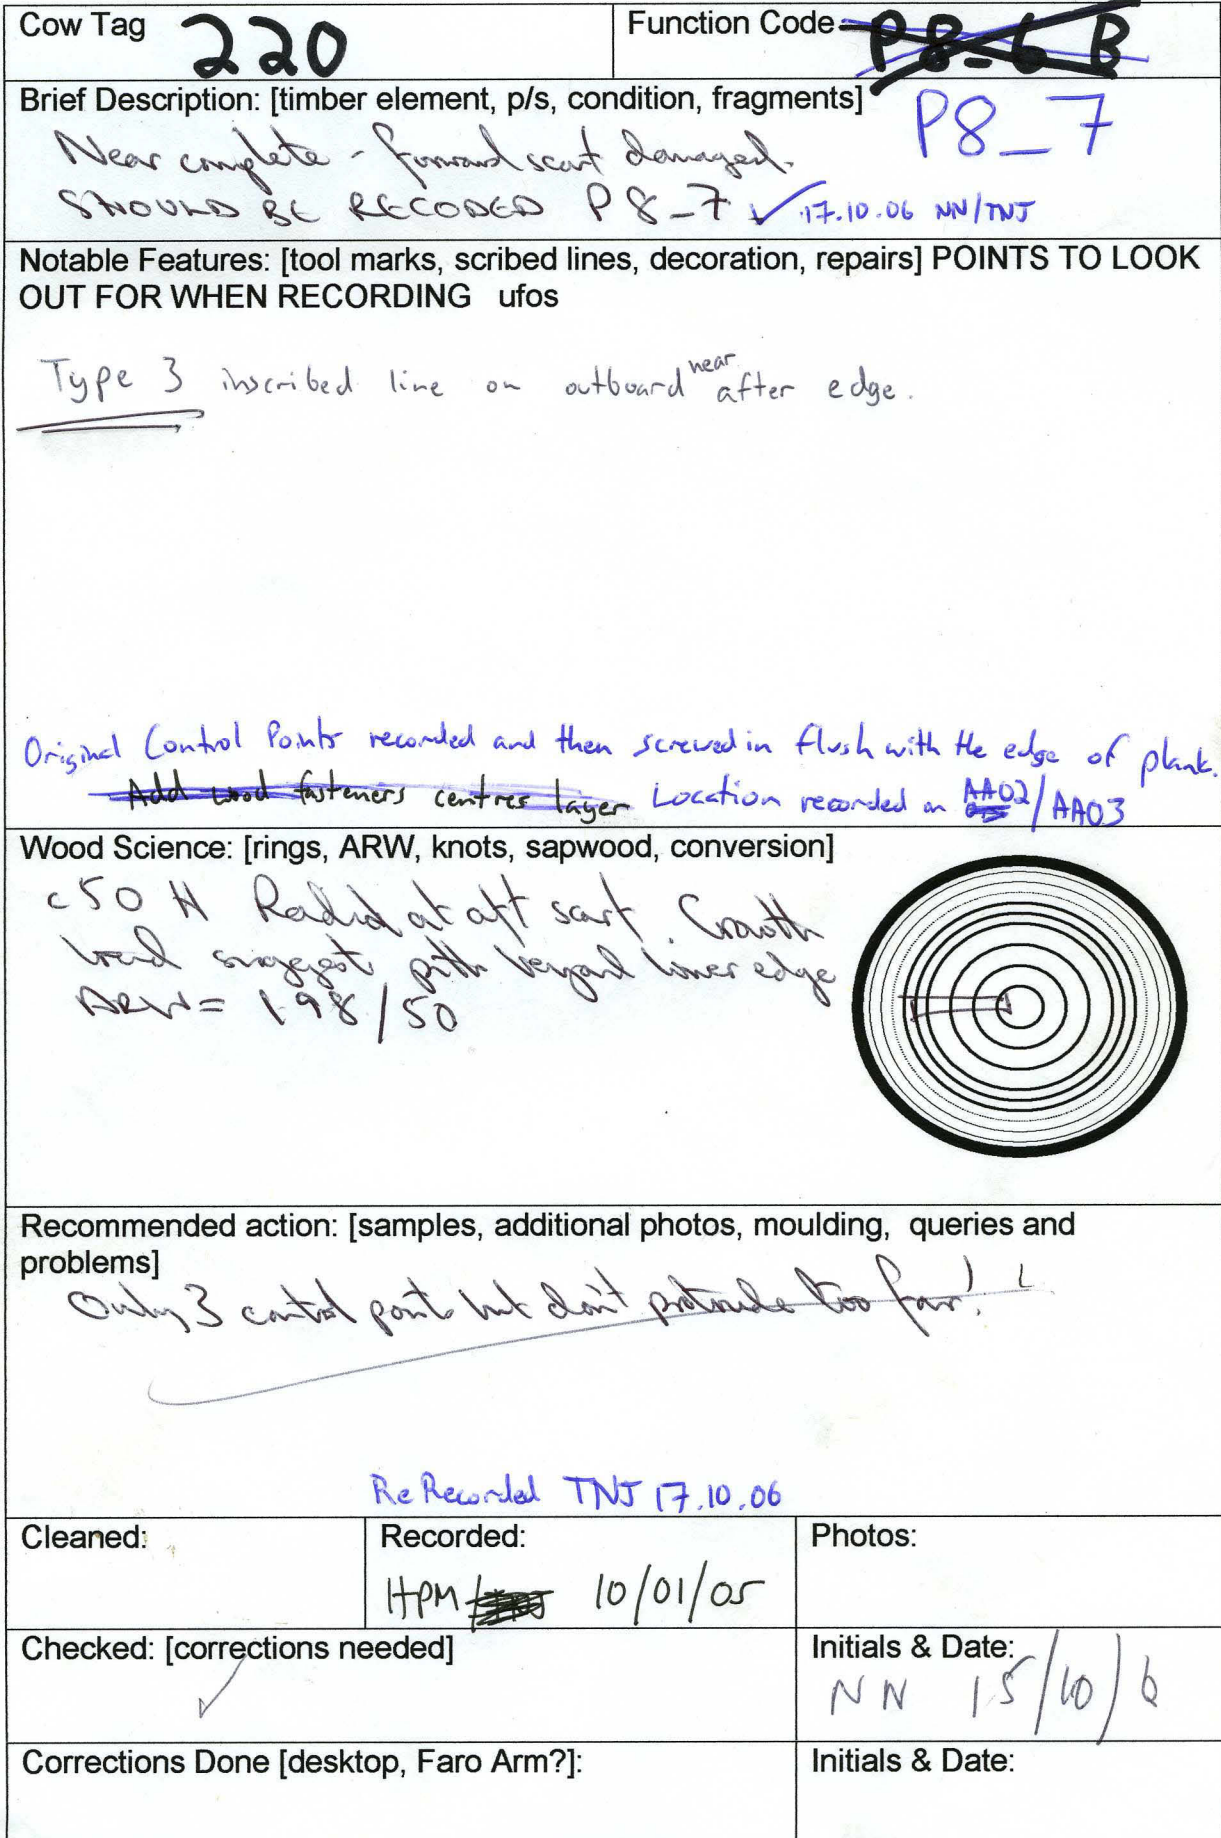 Cow Tag 220
Function Code P8-6 B
Brief Description: [timber element, p/s, condition, fragments]
P8_7
Near complete - forward scarf damaged.
SHOULD BE RECODED P8_7 ✓ 17.10.06 NN/TNJ
Notable Features: [tool marks, scribed lines, decoration, repairs] POINTS TO LOOK
OUT FOR WHEN RECORDING ufos
Type 3 inscribed line on outboard near after edge.
Original Control Points recorded and then screwed in flush with the edge of plank.
Add wood fasteners centres layer Location recorded on AA02/AA03
Wood Science: [rings, ARW, knots, sapwood, conversion]
c50 H Radial at aft scarf. Growth
trend suggests pith beyond lower edge
ARW = 1.98/50
Recommended action: [samples, additional photos, moulding, queries and
problems]
Only 3 control points but don't protrude too far!
ReRecorded TNJ 17.10.06
Cleaned:
Recorded:
Photos:
HPM/ 10/01/05
Checked: [corrections needed]
Initials & Date:
✓
NN 15/10/6
Corrections Done [desktop, Faro Arm?]:
Initials & Date: